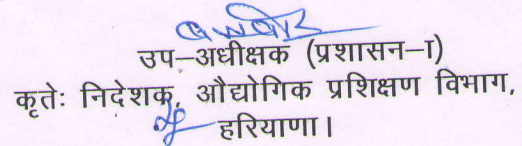 उप–अधीक्षक (प्रशासन–I)
कृतेः निदेशक, औद्योगिक प्रशिक्षण विभाग,
हरियाणा।